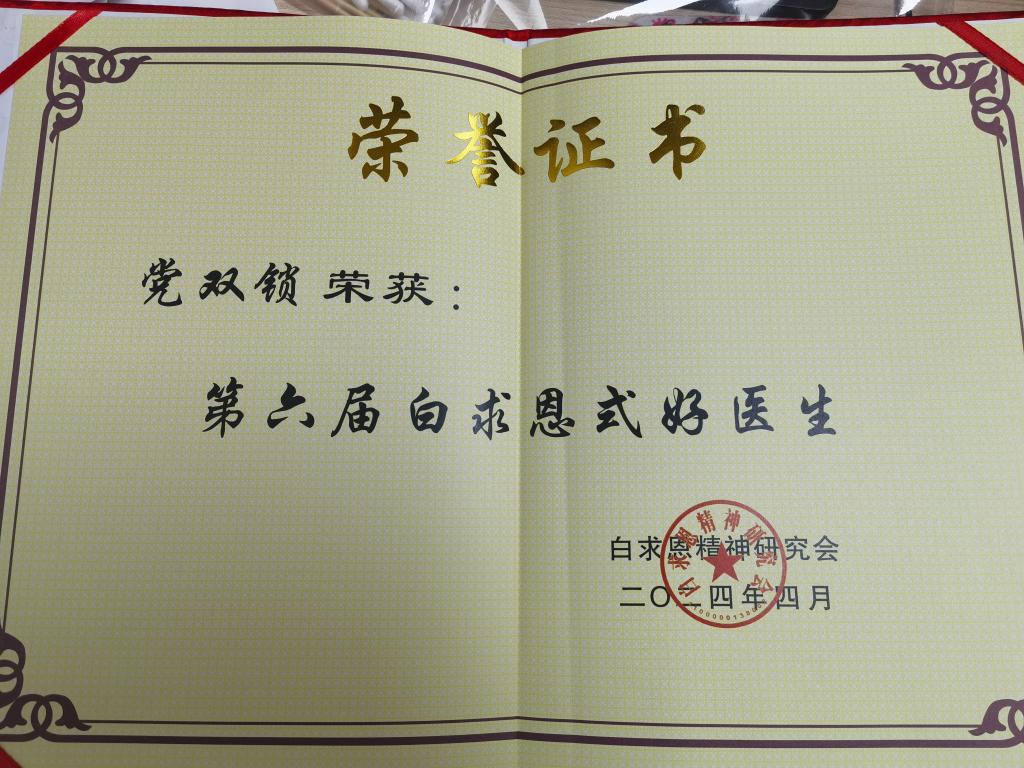 荣誉证书
党双锁 荣获：
第六届白求恩式好医生
白求恩精神研究会
二〇二四年四月
白求恩精神研究会